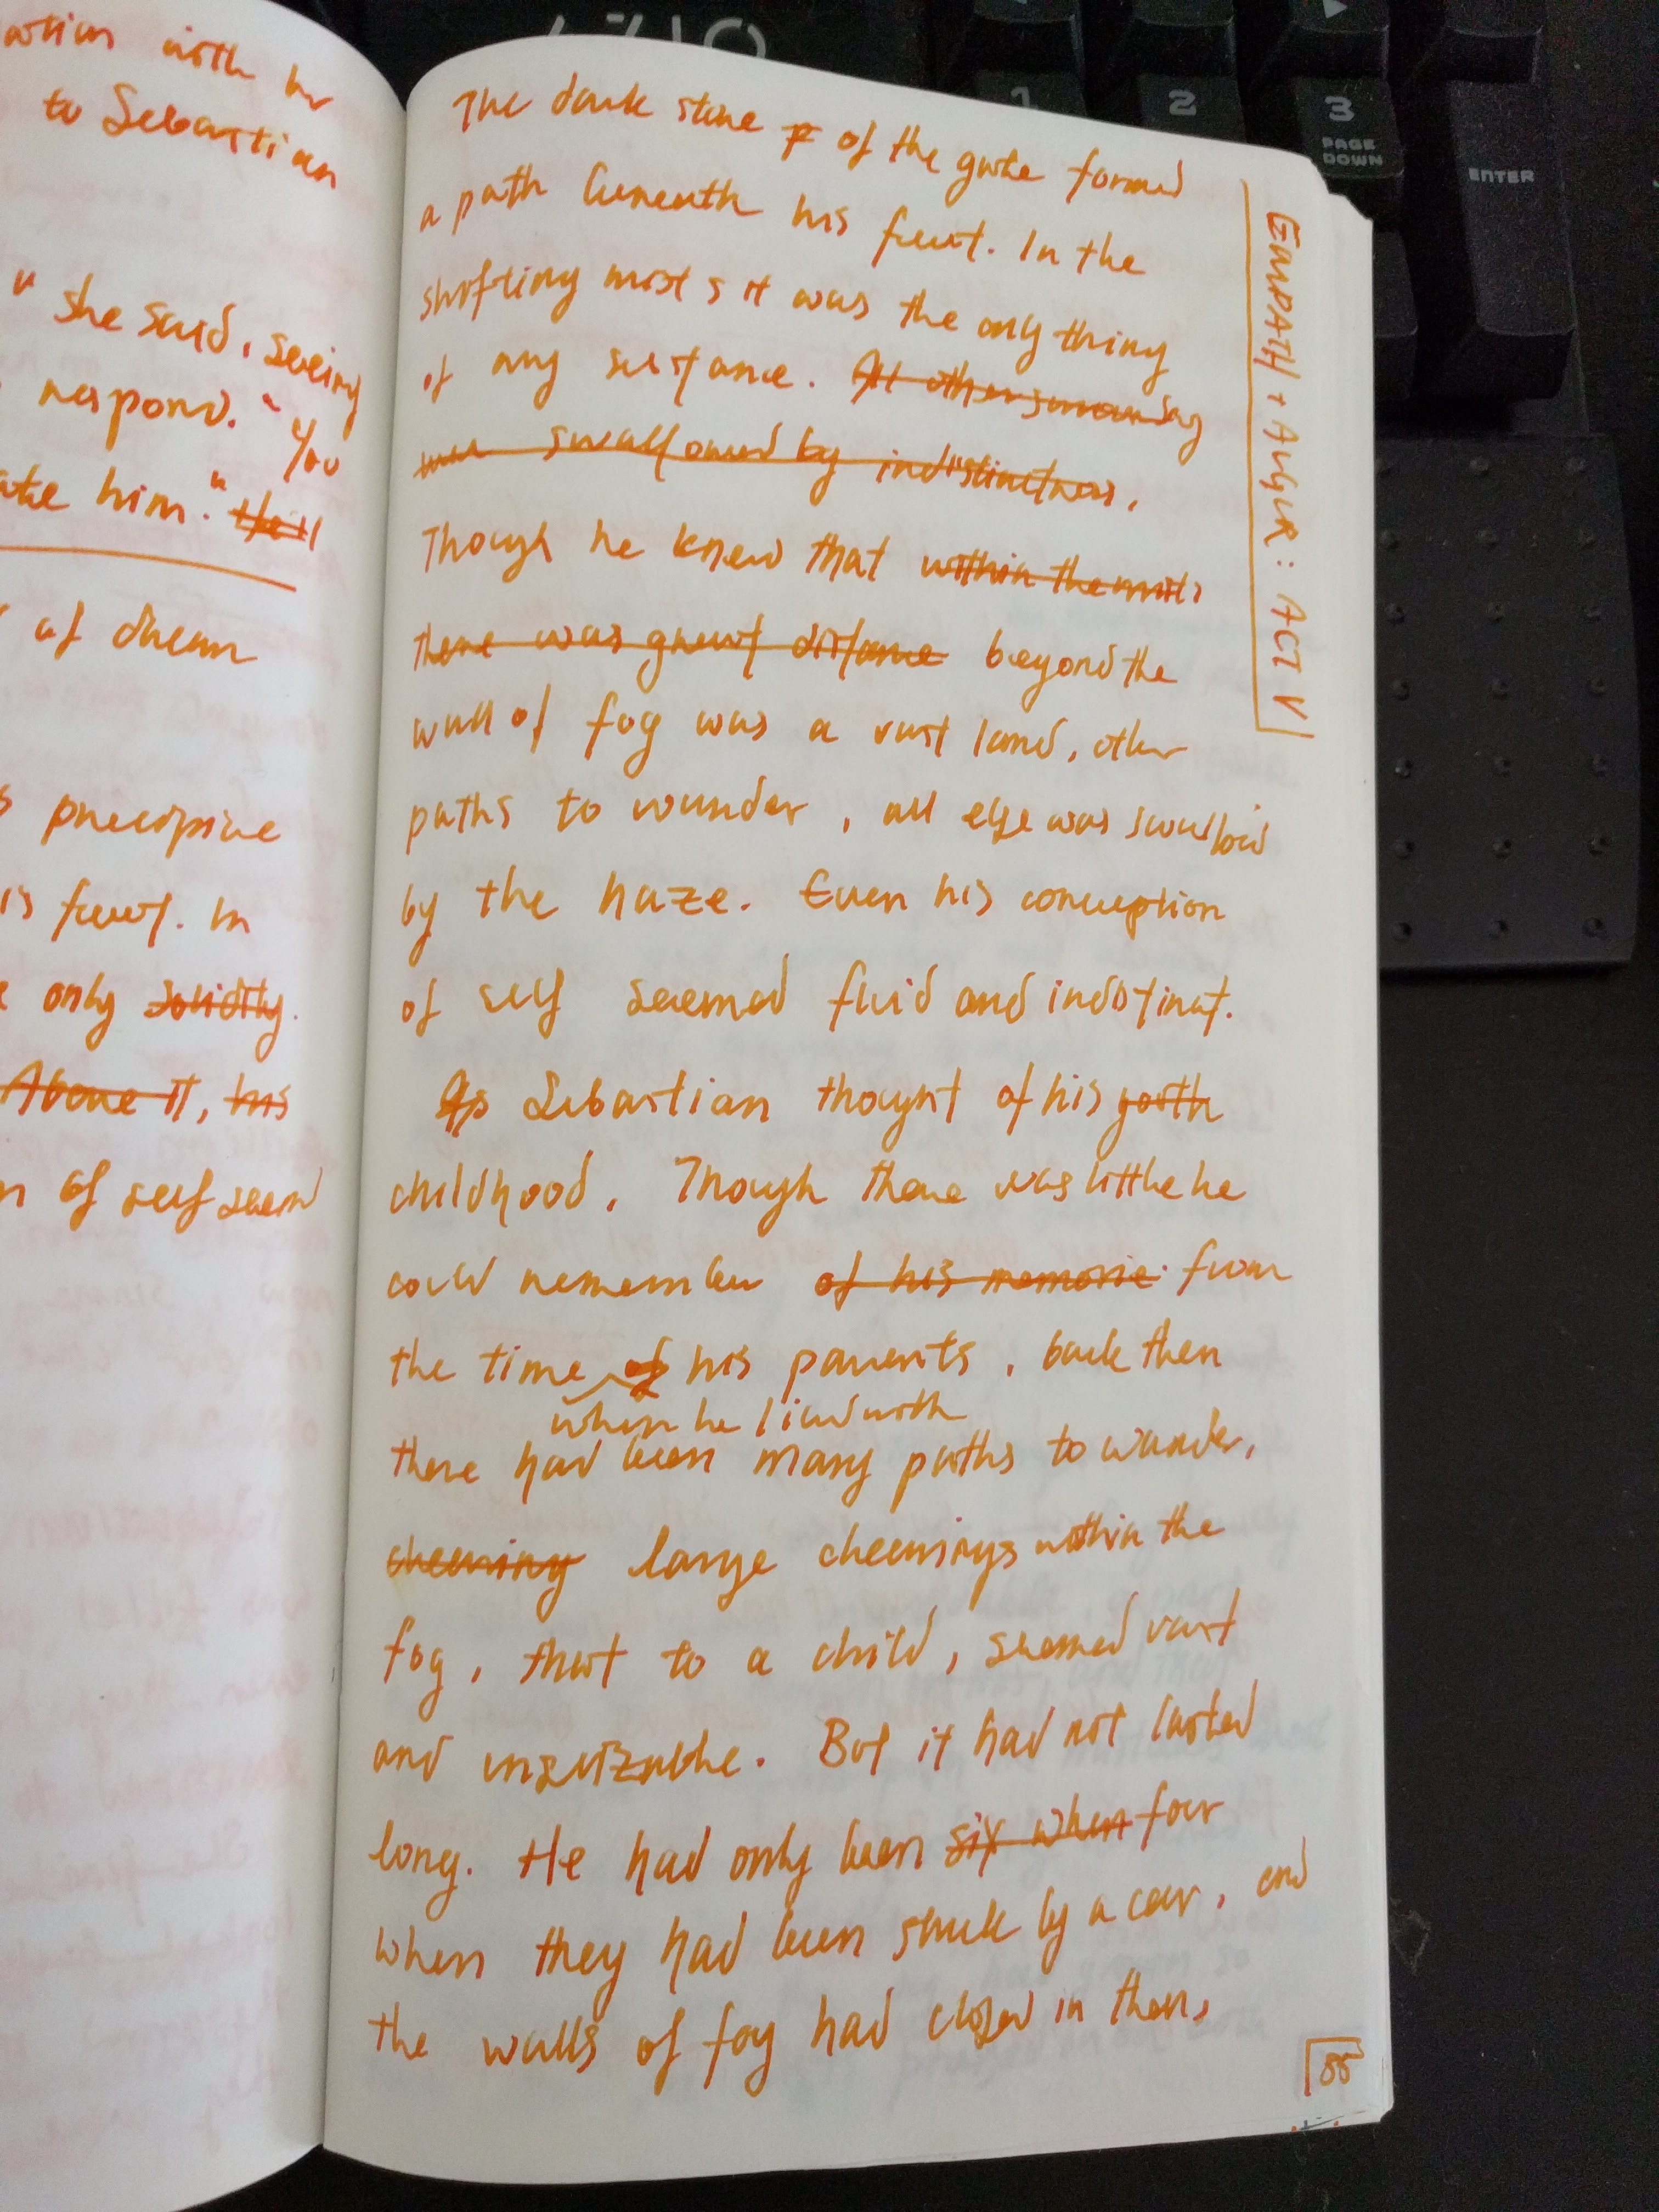 ation with her
to Sebastian
" she said, seeing
respond. "You
him." He
of dream
precipice
is feet. In
only solidity.
Above it, his
of self seem
The dark stone of the gate formed
a path beneath his feet. In the
shifting mists it was the only thing
of any substance. All other surrounding
was swallowed by indistinctness.
Though he knew that within the mists
there was great distance beyond the
wall of fog was a vast land, other
paths to wander, all else was swallowed
by the haze. Even his conception
of self seemed fluid and indistinct.
As Sebastian thought of his youth
childhood. Though there was little he
could remember of his memorie from
the time of his parents, back then
when he lived with
there had been many paths to wander,
clearing large clearings within the
fog, that to a child, seemed vast
and unseizable. But it had not lasted
long. He had only been six when four
when they had been struck by a car, and
the walls of fog had closed in then.
EMPATH + AUGUR: ACT V
55
1
2
3
PAGE
DOWN
ENTER